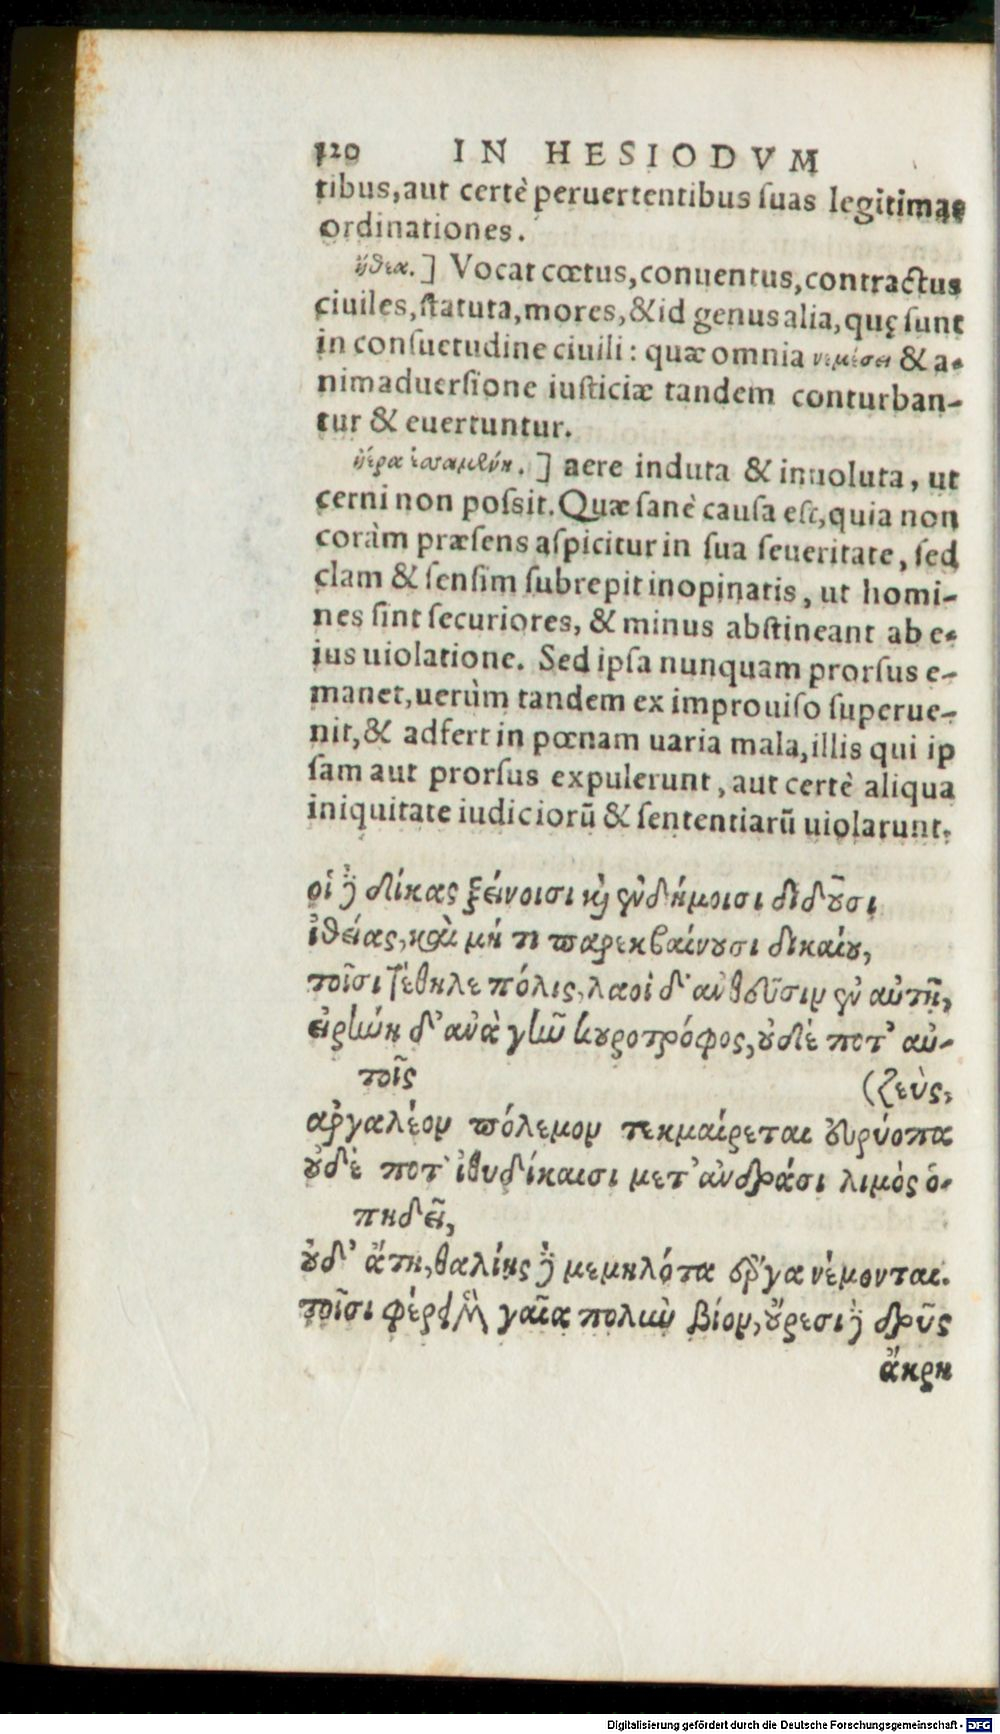 120 IN HESIODVM
tibus, aut certè peruertentibus ſuas legitimas
ordinationes.
ἤθεα.] Vocat cœtus, conuentus, contractus
ciuiles, ſtatuta, mores, & id genus alia, quę ſunt
in conſuetudine ciuili: quæ omnia νεμέσει & a-
nimaduerſione iuſticiæ tandem conturban-
tur & euertuntur.
ἠέρα ἑσσαμένη.] aere induta & inuoluta, ut
cerni non poſsit. Quæ ſanè cauſa eſt, quia non
coràm præſens aſpicitur in ſua ſeueritate, ſed
clam & ſenſim ſubrepit inopinatis, ut homi-
nes ſint ſecuriores, & minus abſtineant ab e-
ius uiolatione. Sed ipſa nunquam prorſus e-
manet, uerùm tandem ex improuiſo ſuperue-
nit, & adfert in pœnam uaria mala, illis qui ip
ſam aut prorſus expulerunt, aut certè aliqua
iniquitate iudiciorũ & ſententiarũ uiolarunt.
οἱ δὲ δίκας ξείνοισι καὶ ἐνδήμοισι διδοῦσι
ἰθείας, καὶ μή τι παρεκβαίνουσι δικαίου,
τοῖσι τέθηλε πόλις, λαοὶ δ' ἀνθεῦσιν ἐν αὐτῇ,
εἰρήνη δ' ἀνὰ γῆν κουροτρόφος, οὐδέ ποτ' αὐ-
τοῖς (ζεὺς,
ἀργαλέον πόλεμον τεκμαίρεται εὐρύοπα
οὐδέ ποτ' ἰθυδίκαισι μετ' ἀνδράσι λιμὸς ὀ-
πηδεῖ,
οὐδ' ἄτη, θαλίῃς δὲ μεμηλότα ἔργα νέμονται.
τοῖσι φέρει μὲν γαῖα πολὺν βίον, οὔρεσι δὲ δρῦς
ἄκρη
Digitalisierung gefördert durch die Deutsche Forschungsgemeinschaft - DFG